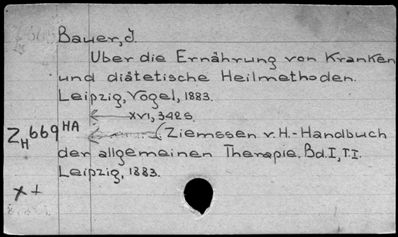 Bauer, J.
Über die Ernährung von Kranken
und diätetische Heilmethoden.
Leipzig, Vogel, 1883.
XVI, 342 S.
ZH 669 HA
(Ziemssen v. H. - Handbuch
der allgemeinen Therapie. Bd. I, T. I.
Leipzig, 1883.
x+